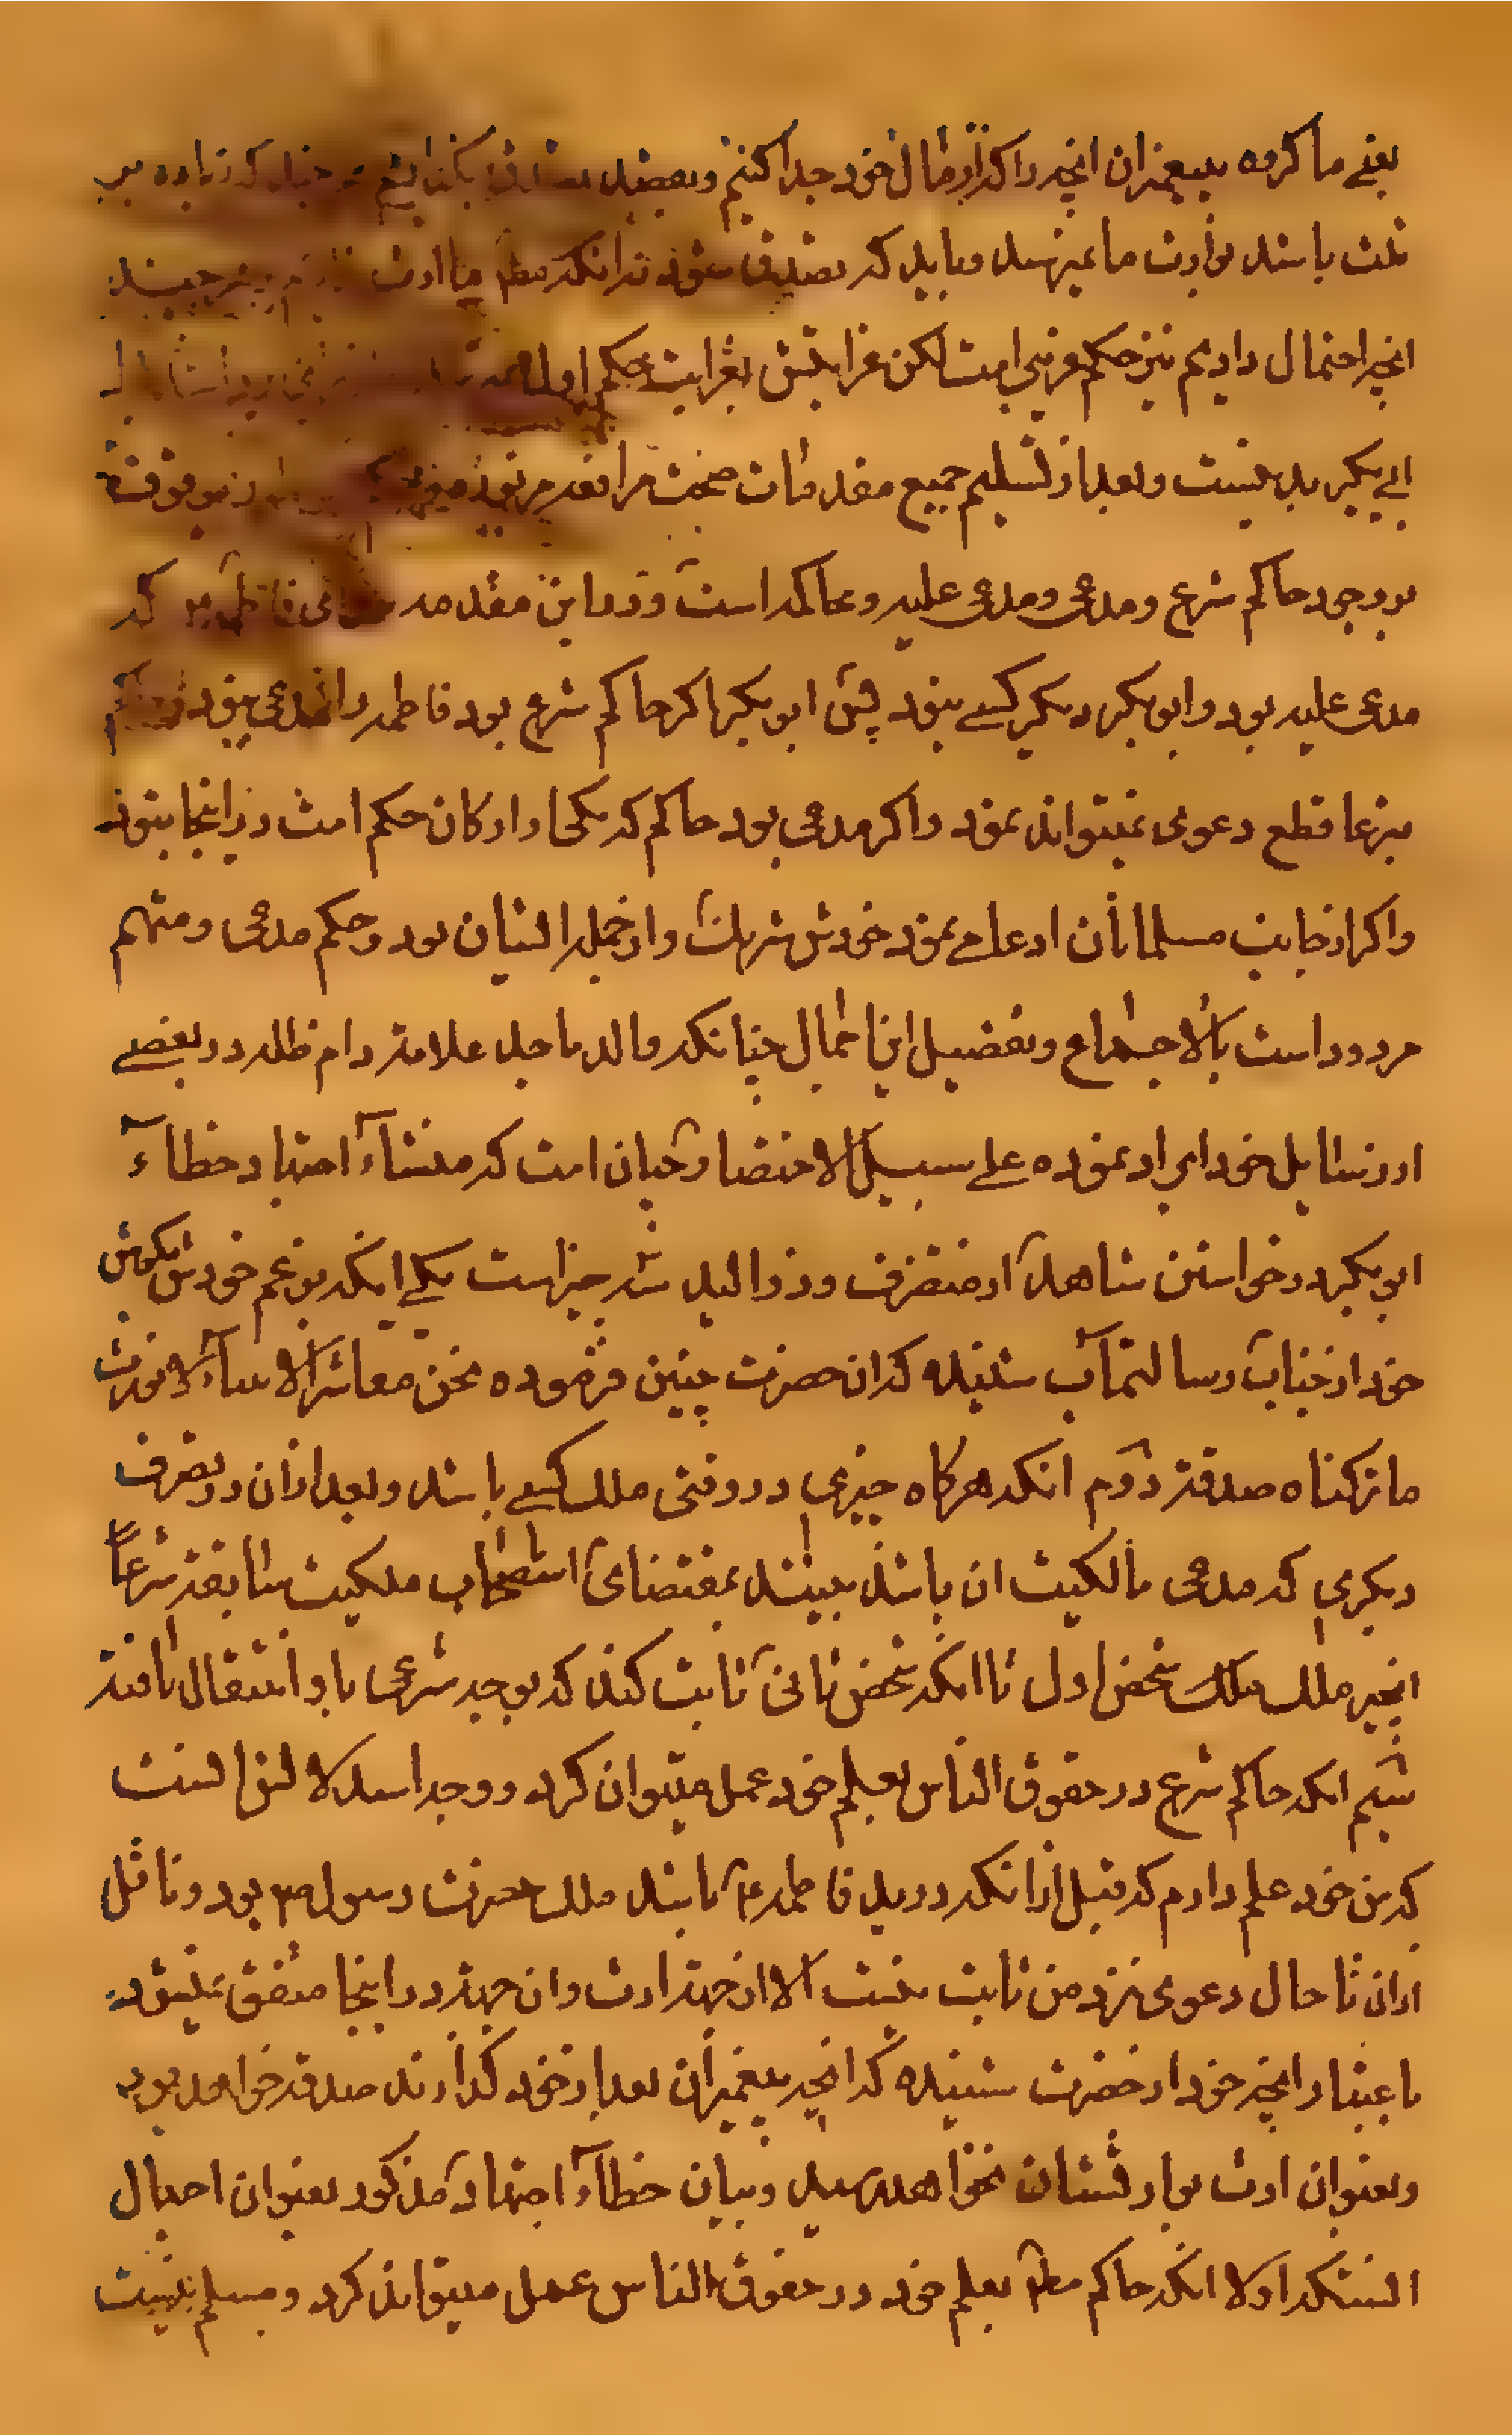 یعنی ما کروه پیغمبران انچه را که از مال خود جدا کنیم و بقصد بکذاریم که زیاده بر
ثلث باشد بوارث ما نمیرسد و باید که تصدیق شود نه انکه مطلقا ارث
انچه احتمال دادیم نیز حکم غریبی است لکن غرابتش بغرابت حکم اول
ابی بکر بد نیست و بعد از تسلیم جمیع مقدمات صحت مرافعه موقوف
بوجود حاکم شرع و مدعی و مدعی علیه و محاکمه است و در این مقدمه که
مدعی علیه بود و ابو بکر دیکر کسی نبود پس ابو بکر اکر حاکم شرع بود فاطمه را مدعی نبود و حاکم
شرعا قطع دعوی نمیتواند نمود و اکر مدعی بود حاکم که یکی از ارکان حکم است در اینجا نبود
و اکر از جانب مسلمانان ادعا می نمود خودش شریک و از جمله ایشان بود و حکم مدعی و متهم
مردود است بالاجماع و تفصیل این اجمال چنانکه والد ماجد علامه دام ظله در بعضی
از رسایل خود ایراد نموده علی سبیل الاختصار چنان است که منشاء اجتهاد خطاء
ابو بکر در خواستن شاهد از متصرف و ذو الید سه چیز است یکی اینکه بزعم خودش بکوش
خود از جناب رسالتماب شنیده که ان حضرت چنین فرموده نحن معاشر الانبیاء لا نورث
ما ترکناه صدقة دوم انکه هرکاه چیزی در وقتی ملک کسی باشد و بعد از ان در تصرف
دیکری که مدعی مالکیت ان باشد ببیند بمقتضای استصحاب ملکیت سابقه شرعاً
انچیز ملک شخص اول تا انکه شخص ثانی ثابت کند که بوجه شرعی باو انتقال یافته
سیم انکه حاکم شرع در حقوق الناس بعلم خود عمل میتوان کرد و وجه استدلالش اینست
که من خود علم دارم که قبل از انکه در ید فاطمه ع باشد ملک حضرت رسول ص بود و ناقل
از ان تا حال دعوی نزد من ثابت نیست الا از جهة ارث و ان جهة در اینجا متفق نمیشود
باعتبار انچه خود از حضرت شنیده که انچه پیغمبران بعد از خود کذارند صدقه خواهد بود
و بعنوان ارث بوارثشان نخواهد رسید و بیان خطاء اجتهاد مذکور بعنوان اجمال
اینستکه اولا انکه حاکم مطلقا بعلم خود در حقوق الناس عمل میتواند کرد و مسلم نیست